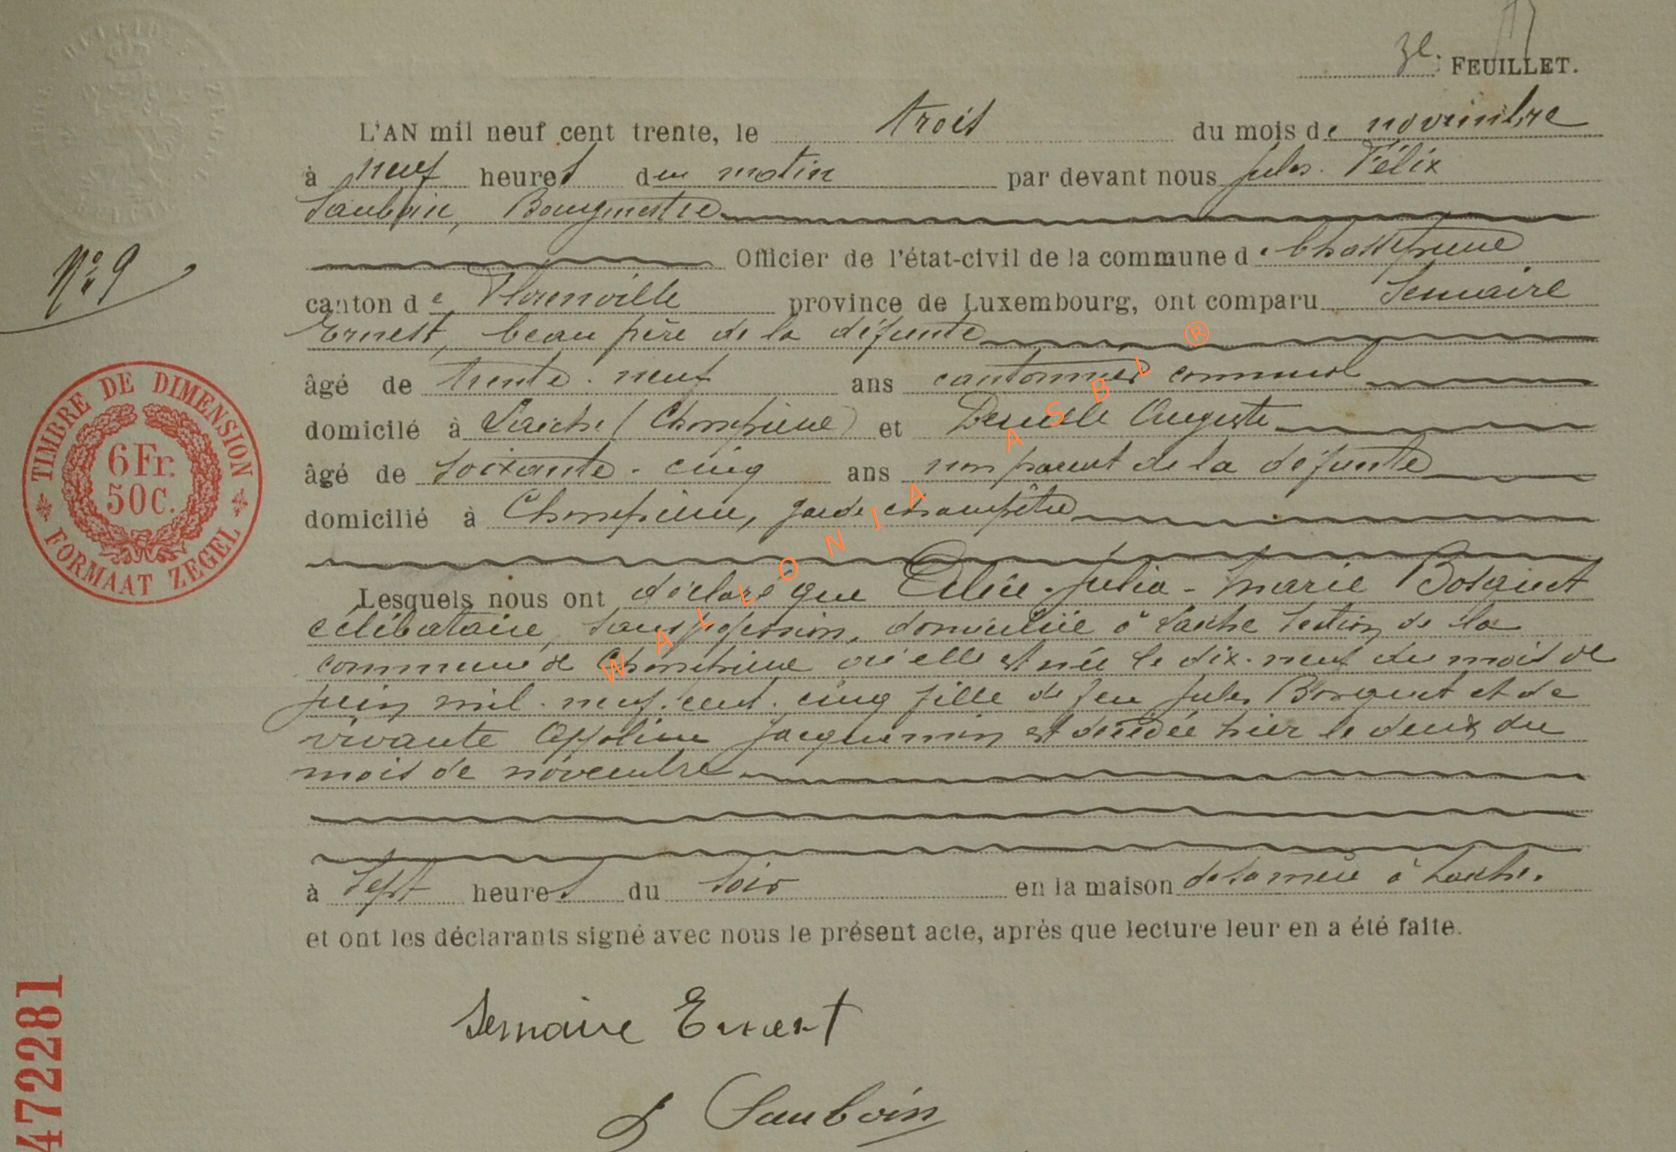 3e. FEUILLET.
L'AN mil neuf cent trente, le trois du mois de novembre
à neuf heures du matin par devant nous Jules Félix
Sauboin, Bourgmestre
Officier de l'état-civil de la commune de Chassepierre
N° 9
canton de Florenville province de Luxembourg, ont comparu Semaire
Ernest, beau père de la défunte
âgé de trente-neuf ans cantonnier communal
domicilé à Laiche (Chassepierre) et Auguste
âgé de soixante-cinq ans non parent de la défunte
domicilié à Chassepierre, garde champêtre
TIMBRE DE DIMENSION
6 Fr.
50 C.
FORMAAT ZEGEL
Lesquels nous ont déclaré que Julia-Marie Bosquet
célibataire, sans profession, domiciliée à Laiche section de la
commune de Chassepierre où elle est née le dix-neuf du mois de
juin mil-neuf-cent-cinq fille de feu Jules Bosquet et de
vivante Appoline Jacquemin est décédée hier le deux du
mois de novembre
à sept heures du soir en la maison de sa mère à Laiche.
et ont les déclarants signé avec nous le présent acte, après que lecture leur en a été faite.
Semaire Ernest
J Sauboin
472281
WALLONIA ASBL ®